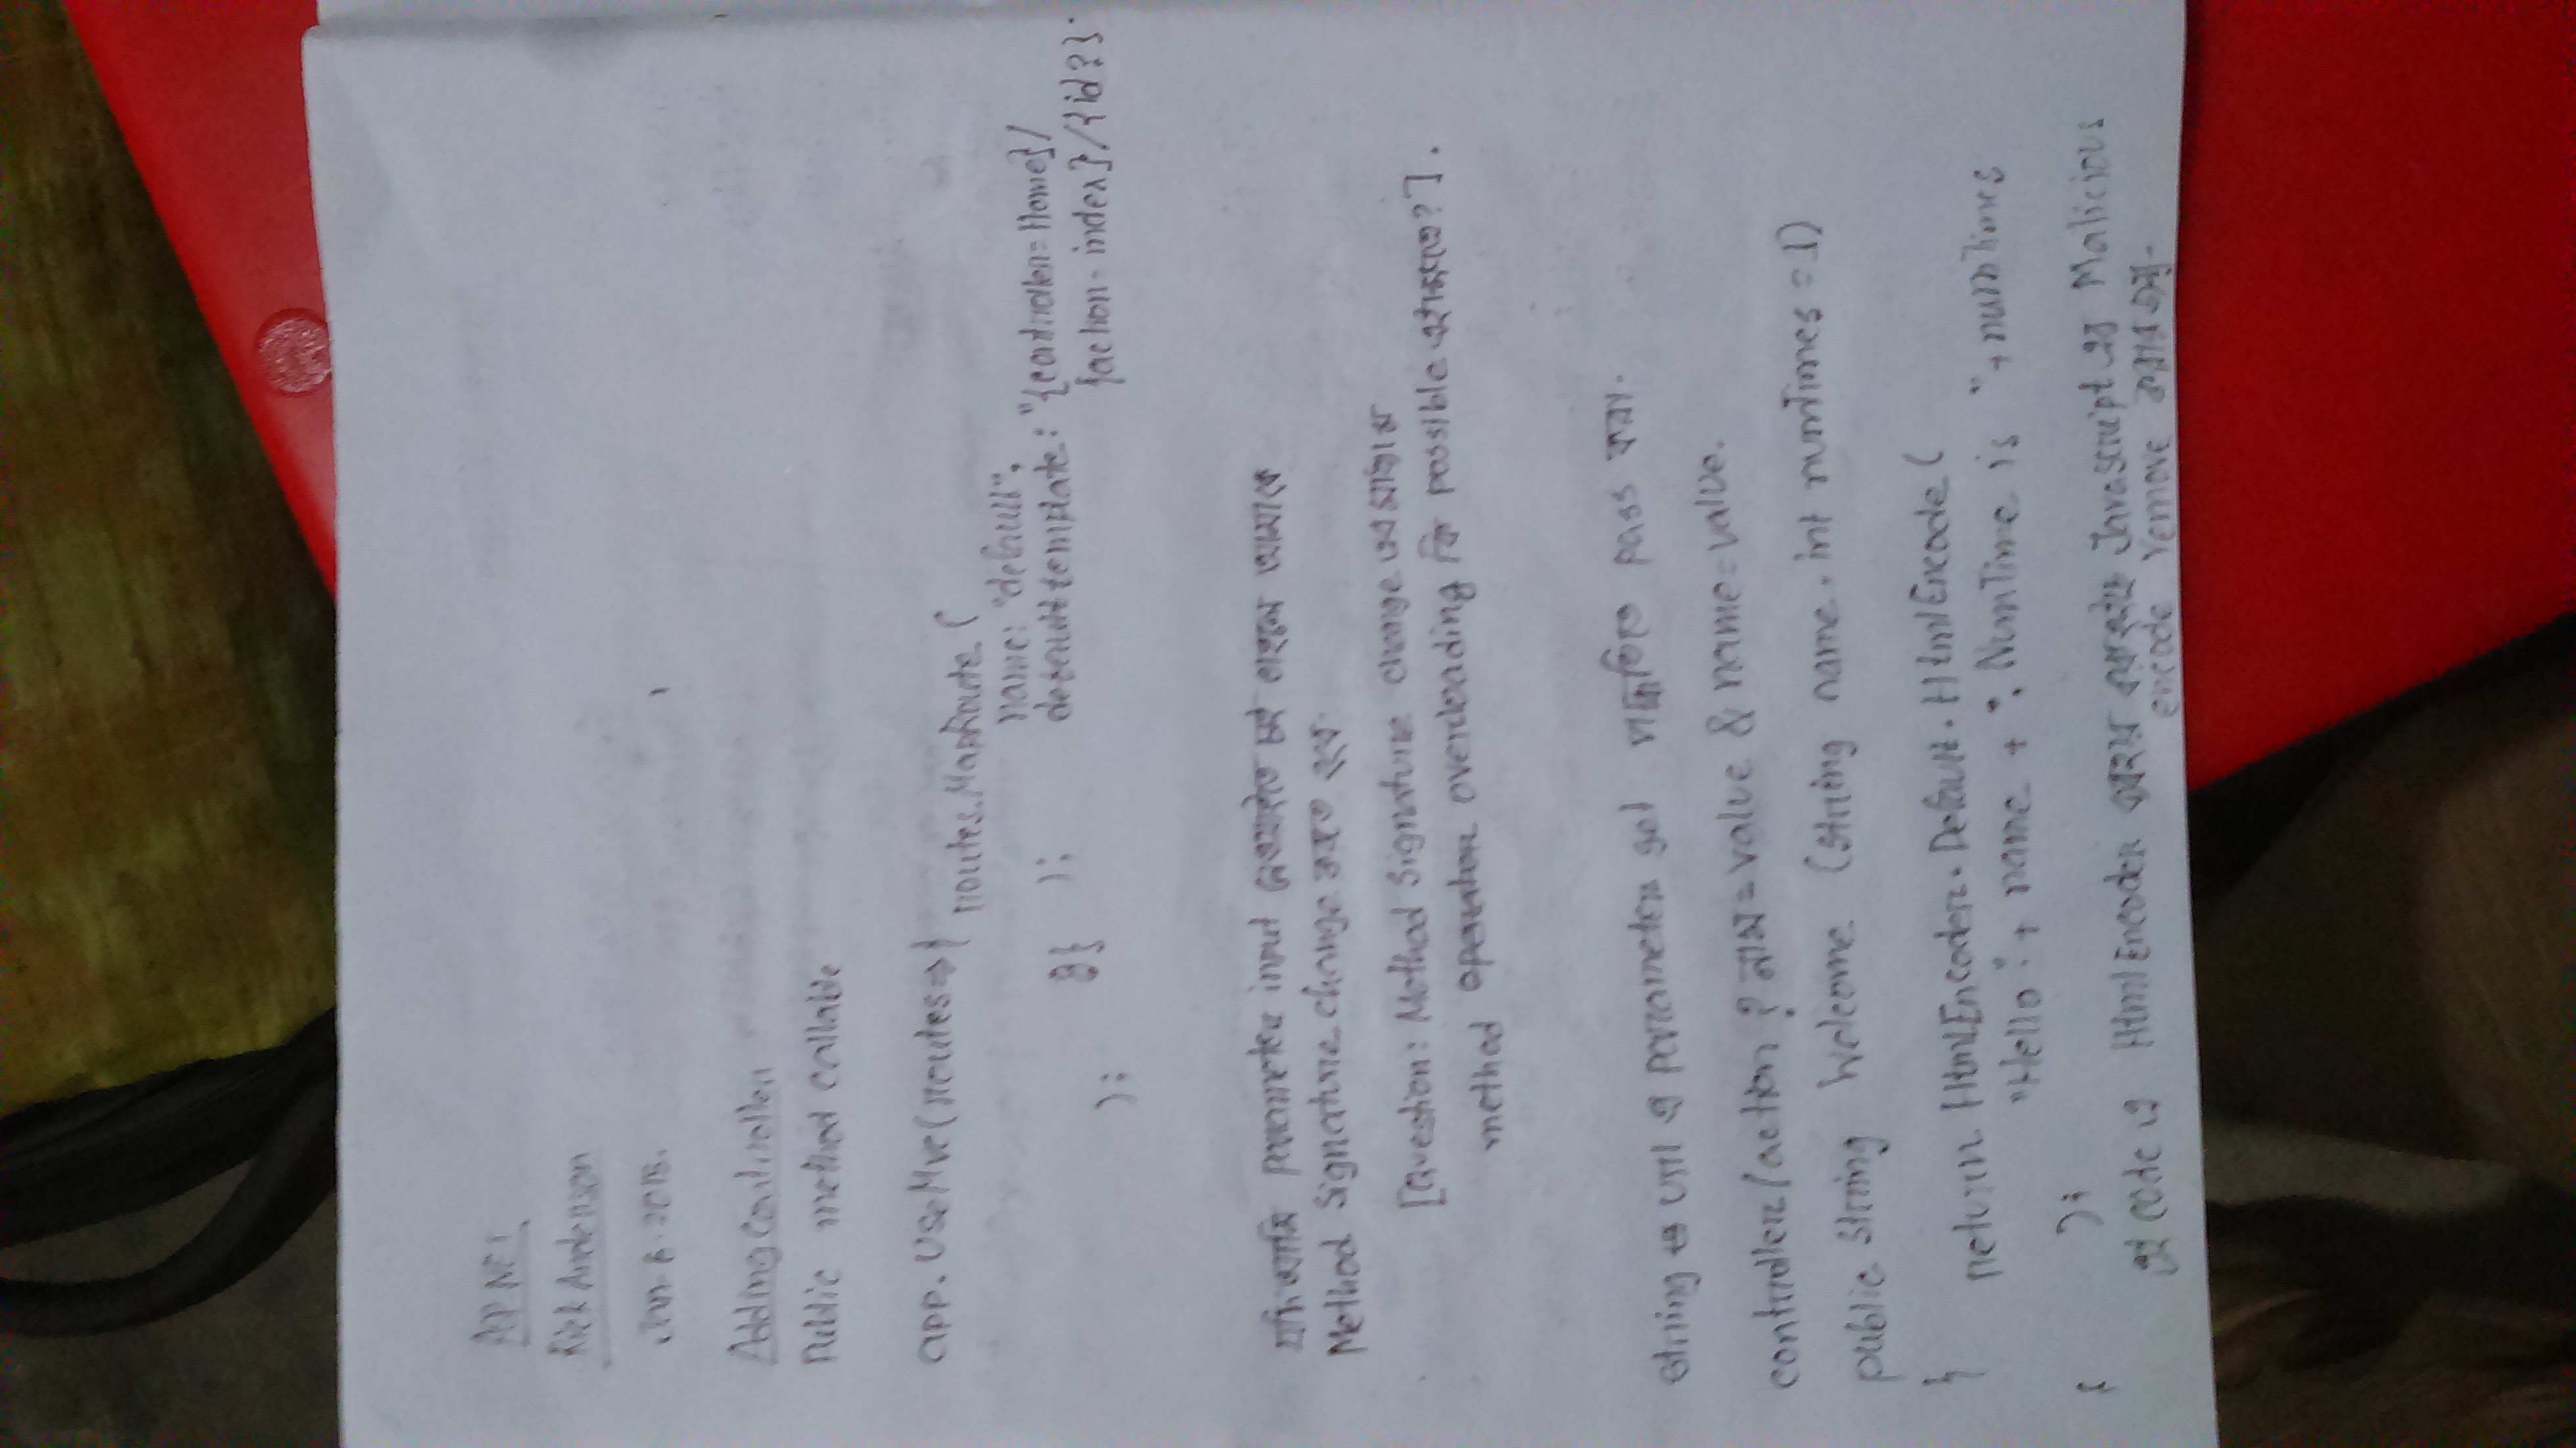 Rick Anderson
Adding Controller
Public method callable
app. UseMvc(routes=>{ routes.MapRoute (
name: "default",
default template: "{controller=Home}/
}} ); {action= index}/{id?}
);
যদি আমি parameter input নেওয়াইতে চাই তাহলে আমাকে
Method Signature change করতে হবে.
[Question: Method Signature change এর মাধ্যমে
method overloading কি possible ?].
String url এ parameter get পদ্ধতিতে pass করা.
controller/action ? নাম=value & name=value.
public string Welcome (string name, int numTimes = 1)
{
return HtmlEncoder.Default.HtmlEncode (
"Hello "+ name + ", NumTime is "+numTimes
);
}
এই code এ HtmlEncoder ব্যবহার করা হইছে Javascript এর Malicious
encode remove করার জন্য.